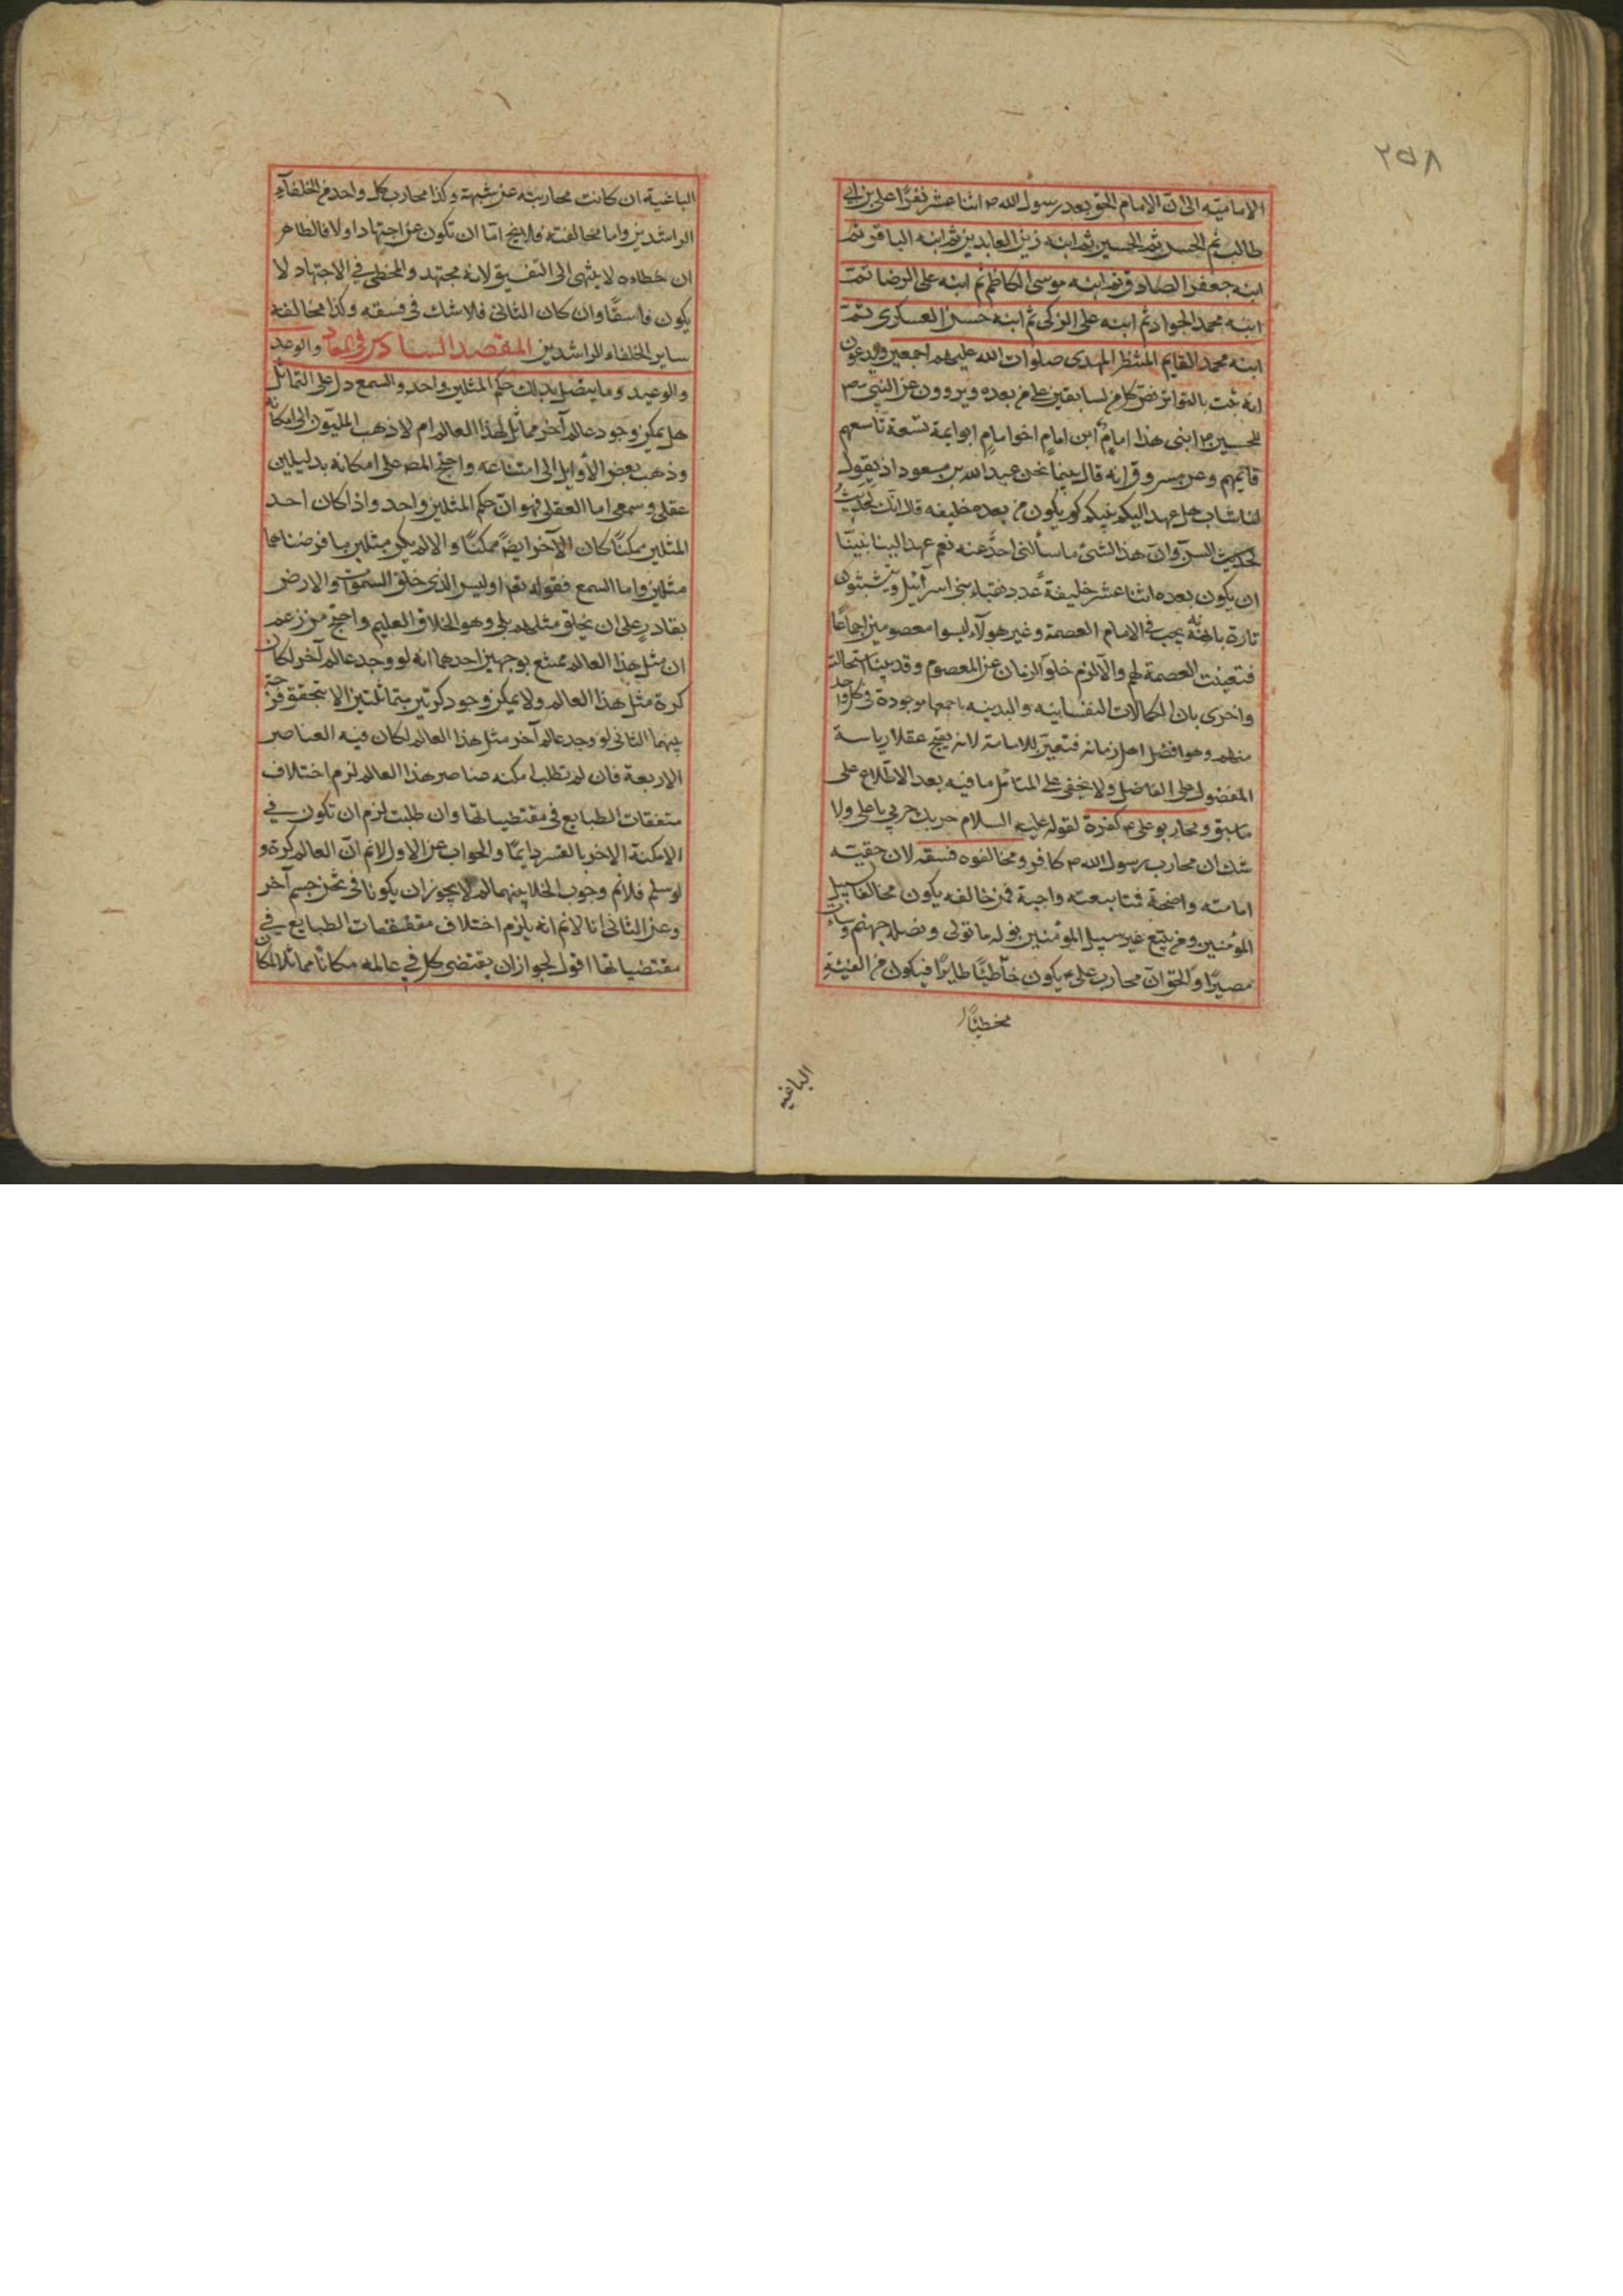 ٢٥٨
الامامية الى ان الامام الحق بعد رسول الله ص اثنا عشر نفرًا على بن ابى
طالب ثم الحسن ثم الحسين ثم ابنه زين العابدين ثم ابنه الباقر ثم
ابنه جعفر الصادق ثم ابنه موسى الكاظم ثم ابنه على الرضا ثم
ابنه محمد الجواد ثم ابنه على الزكى ثم ابنه حسن العسكرى ثم
ابنه محمد القايم المنتظر المهدى صلوات الله عليهم اجمعين ويدعون
انه ثبت بالتواتر نص كل من السابقين على من بعده ويروون عن النبى ص
للحسين ع ابنى هذا امام ابن امام اخو امام ابو ايمة تسعة تاسعهم
قائمهم وعن مسروق انه قال بينما نحن عند عبد الله بن مسعود اذ يقول
لنا شاب هل عهد اليكم نبيكم كم يكون من بعده خليفه قال انك لحديث
السن وان هذا الشئ ما سألنى احد عنه نعم عهد الينا نبينا
ان يكون بعده اثنا عشر خليفة عدد نقباء بنى اسرآئيل ويتشبثون
تارة بانه يجب فى الامام العصمة وغير هولآء ليسوا معصومين اجماعًا
فتعينت العصمة لهم والا لزم خلو الزمان عن المعصوم وقد بينا استحالته
واخرى بان الكمالات النفسانيه والبدنيه باجمعها موجودة فى كل واحد
منهم وهو افضل اهل زمانه فتعين للامامة لانه يقبح عقلا رياسة
المفضول على الفاضل ولا يخفى على المتأمل ما فيه بعد الاطلاع على
ما سبق ومحاربو على ع كفرة لقوله عليه السلام حربك حربي يا على ولا
شك ان محارب رسول الله ص كافر ومخالفوه فسقه لان حقيته
امامته واضحة فمتابعته واجبة فمن خالفه يكون مخالفا سبيل
المؤمنين ومن يتبع غير سبيل المؤمنين نوله ما تولى ونصله جهنم وساءت
مصيرًا والحق ان محارب على ع يكون خاطئًا ظاهرًا فيكون من الفئية
مخطئًا
الباغيه
الباغية ان كانت محاربته عن شبهة وكذا محارب كل واحد من الخلفآء
الراشدين واما مخالفته فلا يخ اما ان تكون عن اجتهاد اولا فالظاهر
ان خطاءه لا ينتهى الى التفسيق لانه مجتهد والمخطى فى الاجتهاد لا
يكون فاسقًا وان كان الثانى فلا شك فى فسقه وكذا مخالفة
ساير الخلفاء الراشدين المقصد السادس فى المعاد والوعد
والوعيد وما يتصل بذلك حكم المثلين واحد والسمع دل على التماثل
هل يمكن وجود عالم آخر مماثل لهذا العالم ام لا ذهب المليون الى امكانه
وذهب بعض الأوايل الى امتناعه واحتج المصـ على امكانه بدليلين
عقلى وسمعى اما العقلى فهو ان حكم المثلين واحد واذا كان احد
المثلين ممكنًا كان الآخر ايضًا ممكنًا والا لم يكن مثلين ما فرضناهما
مثلين واما السمع فقوله تع اوليس الذى خلق السموات والارض
بقادر على ان يخلق مثلهم بلى وهو الخلاق العليم واحتج من زعم
ان مثل هذا العالم ممتنع بوجهين احدهما انه لو وجد عالم آخر لكان
كرة مثل هذا العالم ولا يمكن وجود كرتين متماثلتين الا بتحقق فرجة
بينهما الثانى لو وجد عالم آخر مثل هذا العالم لكان فيه العناصر
الاربعة فان لم تطلب امكنه عناصر هذا العالم لزم اختلاف
متفقات الطبايع فى مقتضياتها وان طلبت لزم ان تكون فى
الامكنة الاخر بالقسر دايمًا والجواب عن الاول لانم ان العالم كرة و
لو سلم فلانم وجوب الخلا بينهما لم لا يجوز ان يكونا فى ثخن جسم آخر
وعن الثانى انا لانم انه يلزم اختلاف متفقات الطبايع فى
مقتضياتها اقول لجواز ان يقتضى كل فى عالمه مكانًا مماثلا لمكان